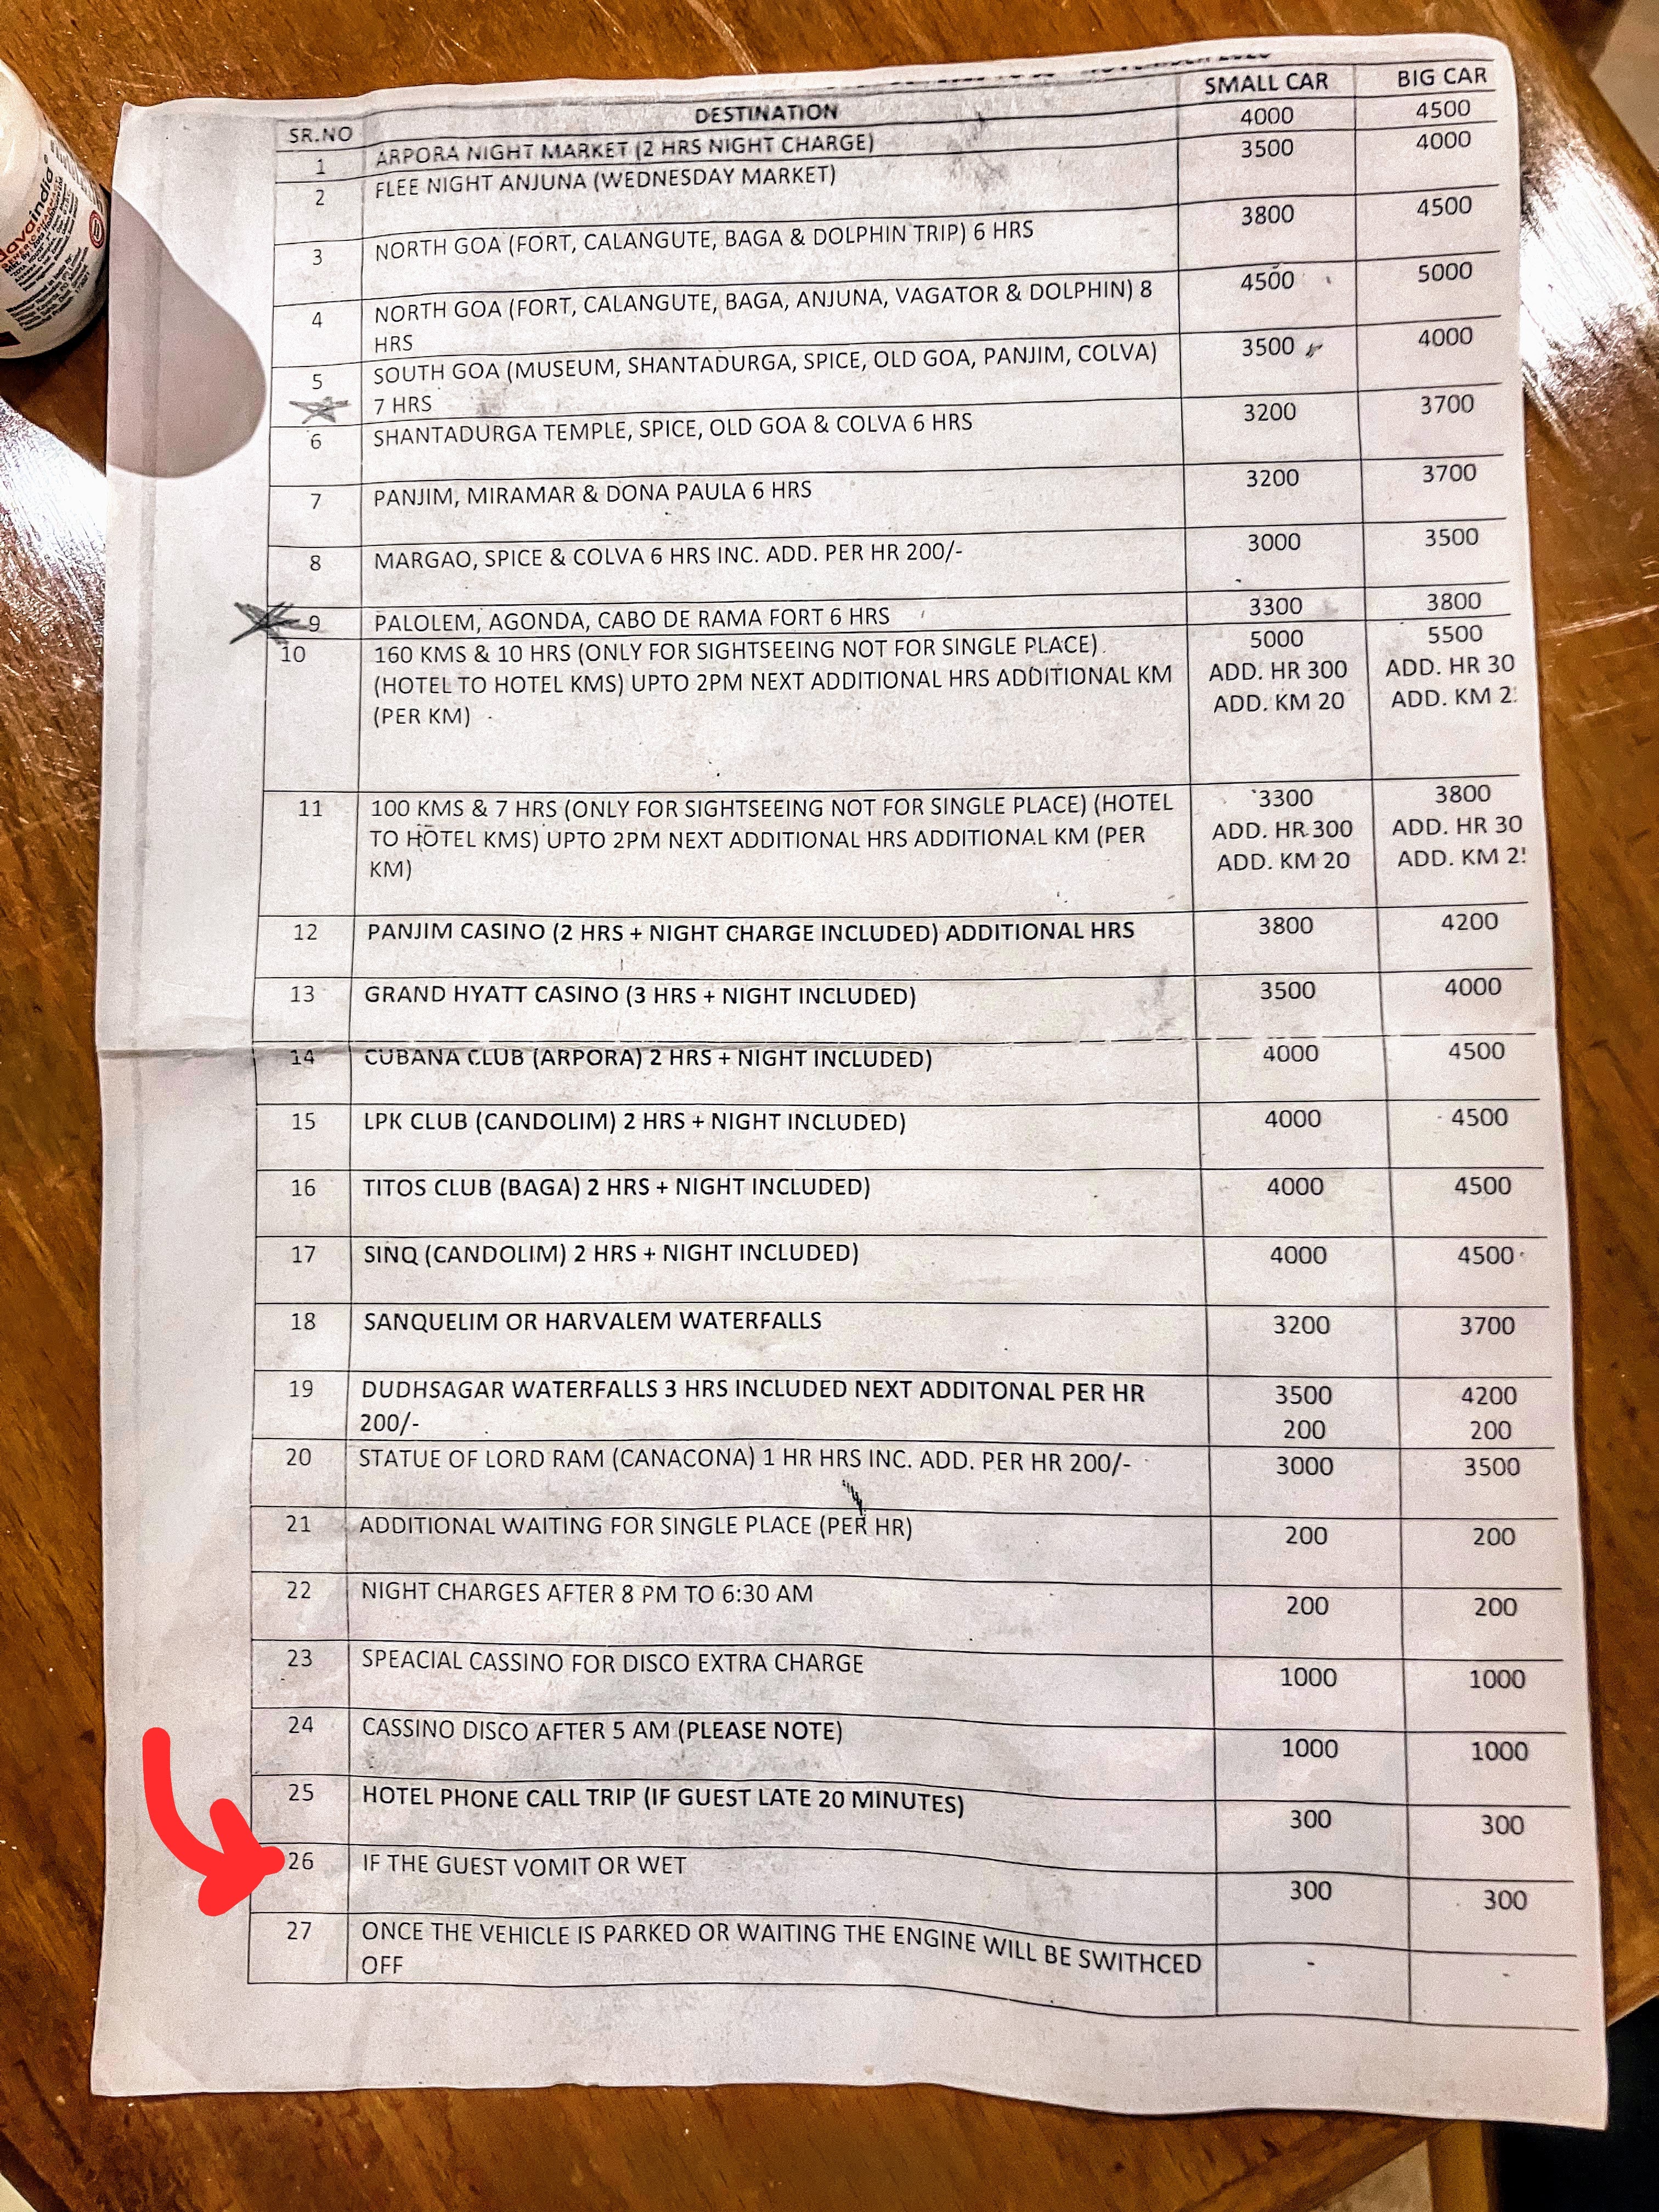 SR.NO DESTINATION SMALL CAR BIG CAR
1 ARPORA NIGHT MARKET (2 HRS NIGHT CHARGE) 4000 4500
2 FLEE NIGHT ANJUNA (WEDNESDAY MARKET) 3500 4000
3 NORTH GOA (FORT, CALANGUTE, BAGA & DOLPHIN TRIP) 6 HRS 3800 4500
4 NORTH GOA (FORT, CALANGUTE, BAGA, ANJUNA, VAGATOR & DOLPHIN) 8 4500 5000
HRS
5 SOUTH GOA (MUSEUM, SHANTADURGA, SPICE, OLD GOA, PANJIM, COLVA) 3500 4000
7 HRS
6 SHANTADURGA TEMPLE, SPICE, OLD GOA & COLVA 6 HRS 3200 3700
7 PANJIM, MIRAMAR & DONA PAULA 6 HRS 3200 3700
8 MARGAO, SPICE & COLVA 6 HRS INC. ADD. PER HR 200/- 3000 3500
9 PALOLEM, AGONDA, CABO DE RAMA FORT 6 HRS 3300 3800
10 160 KMS & 10 HRS (ONLY FOR SIGHTSEEING NOT FOR SINGLE PLACE) 5000 5500
(HOTEL TO HOTEL KMS) UPTO 2PM NEXT ADDITIONAL HRS ADDITIONAL KM ADD. HR 300 ADD. HR 30
(PER KM) ADD. KM 20 ADD. KM 2
11 100 KMS & 7 HRS (ONLY FOR SIGHTSEEING NOT FOR SINGLE PLACE) (HOTEL 3300 3800
TO HOTEL KMS) UPTO 2PM NEXT ADDITIONAL HRS ADDITIONAL KM (PER ADD. HR 300 ADD. HR 30
KM) ADD. KM 20 ADD. KM 2
12 PANJIM CASINO (2 HRS + NIGHT CHARGE INCLUDED) ADDITIONAL HRS 3800 4200
13 GRAND HYATT CASINO (3 HRS + NIGHT INCLUDED) 3500 4000
14 CUBANA CLUB (ARPORA) 2 HRS + NIGHT INCLUDED) 4000 4500
15 LPK CLUB (CANDOLIM) 2 HRS + NIGHT INCLUDED) 4000 4500
16 TITOS CLUB (BAGA) 2 HRS + NIGHT INCLUDED) 4000 4500
17 SINQ (CANDOLIM) 2 HRS + NIGHT INCLUDED) 4000 4500
18 SANQUELIM OR HARVALEM WATERFALLS 3200 3700
19 DUDHSAGAR WATERFALLS 3 HRS INCLUDED NEXT ADDITONAL PER HR 3500 4200
200/- 200 200
20 STATUE OF LORD RAM (CANACONA) 1 HR HRS INC. ADD. PER HR 200/- 3000 3500
21 ADDITIONAL WAITING FOR SINGLE PLACE (PER HR) 200 200
22 NIGHT CHARGES AFTER 8 PM TO 6:30 AM 200 200
23 SPEACIAL CASSINO FOR DISCO EXTRA CHARGE 1000 1000
24 CASSINO DISCO AFTER 5 AM (PLEASE NOTE) 1000 1000
25 HOTEL PHONE CALL TRIP (IF GUEST LATE 20 MINUTES) 300 300
26 IF THE GUEST VOMIT OR WET 300 300
27 ONCE THE VEHICLE IS PARKED OR WAITING THE ENGINE WILL BE SWITHCED - -
OFF